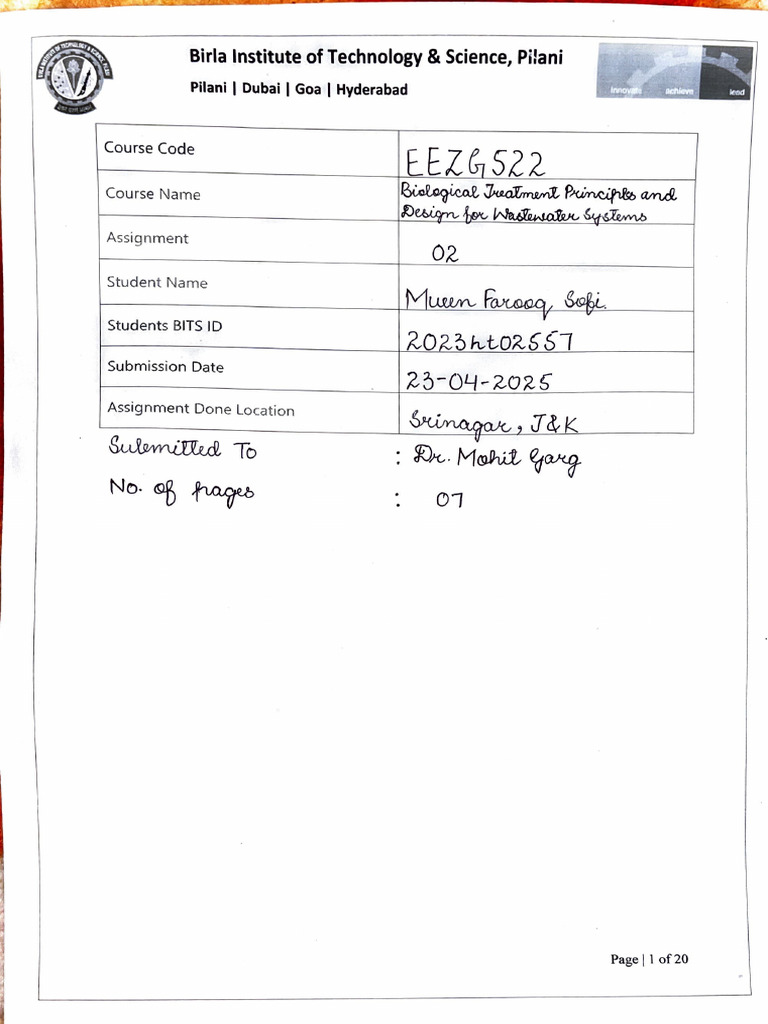 BIRLA INSTITUTE OF TECHNOLOGY & SCIENCE PILANI
Birla Institute of Technology & Science, Pilani
Pilani | Dubai | Goa | Hyderabad
innovate achieve lead
Course Code EEZG522
Course Name Biological Treatment Principles and
Design for Wastewater Systems
Assignment 02
Student Name Mueen Farooq Sofi.
Students BITS ID 2023ht02557
Submission Date 23-04-2025
Assignment Done Location Srinagar, J&K
Submitted To : Dr. Mohit Garg
No. of pages : 07
Page | 1 of 20